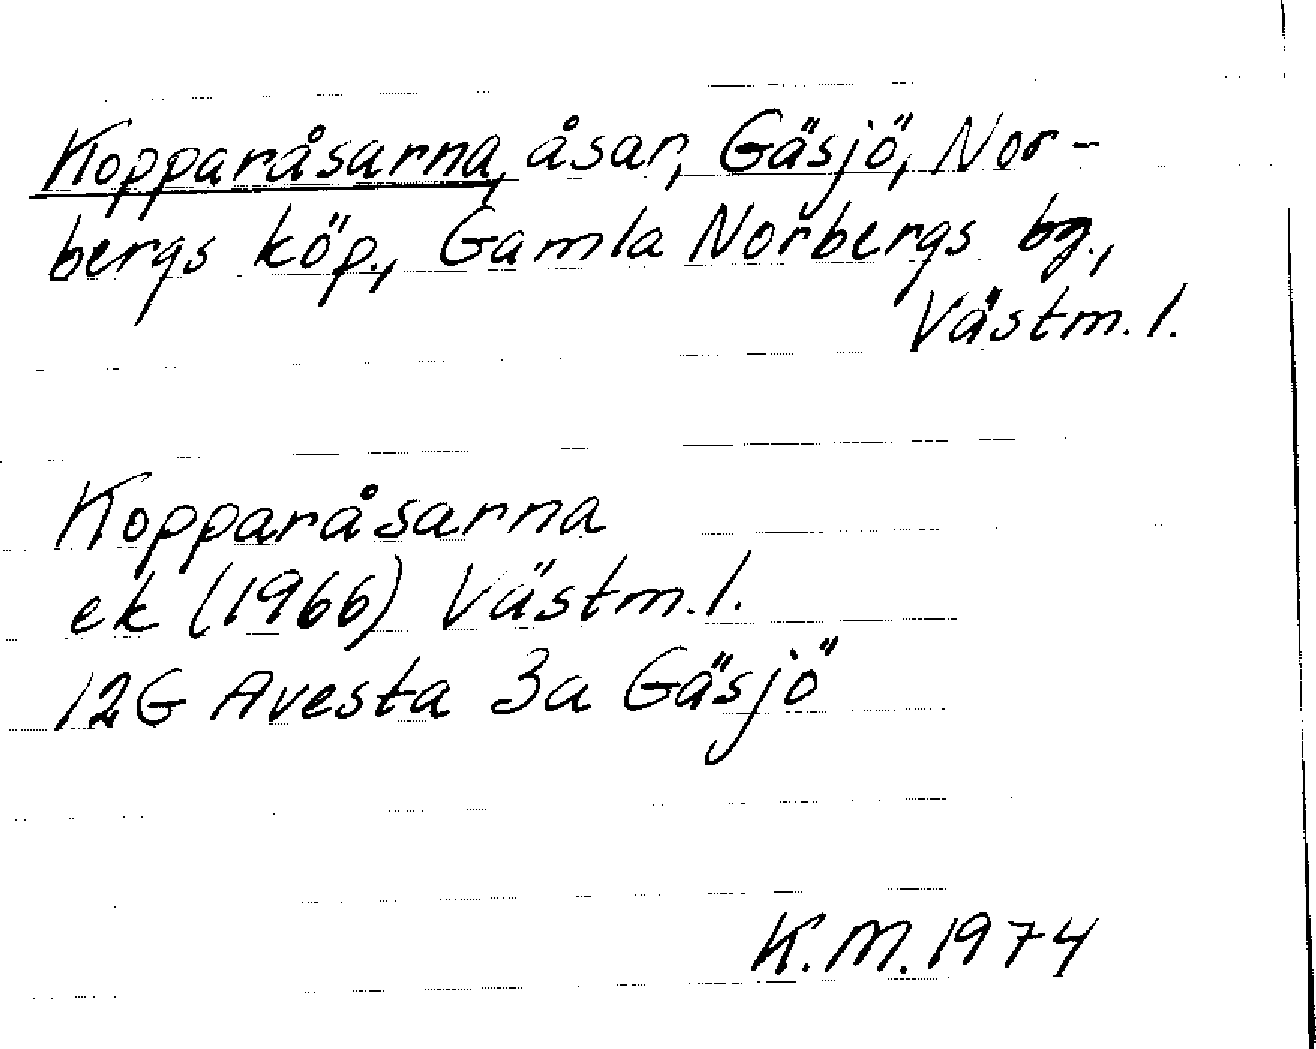 Kopparåsarna, åsar, Gäsjö, Nor-
bergs köp., Gamla Norbergs bg.,
Västm. l.
Kopparåsarna
ek (1966) Västm. l.
12G Avesta 3a Gäsjö
K. M. 1974